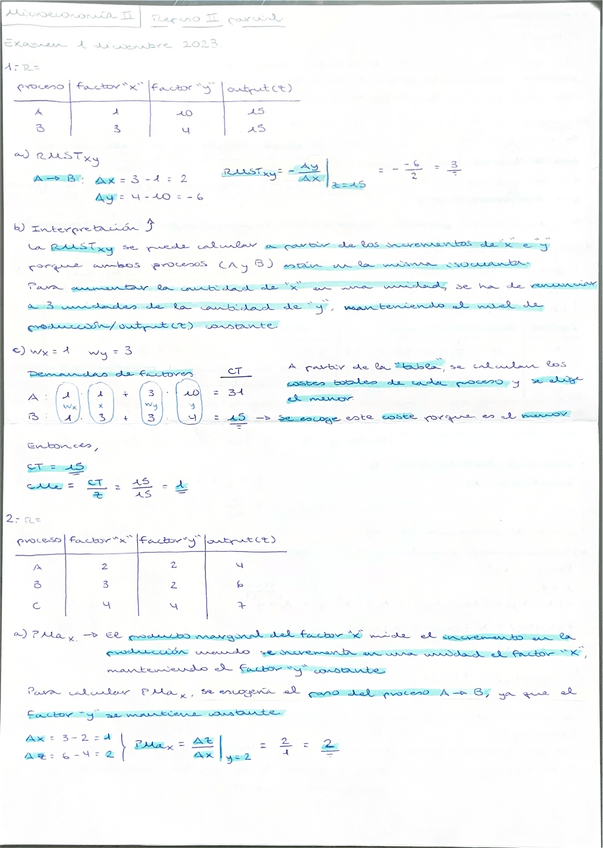 Microeconomía II Repaso II parcial
Examen 1 diciembre 2023
1:R=
proceso factor "x" factor "y" output(z)
A 1 10 15
B 3 4 15
a) RMSTxy
A → B: Δx = 3 - 1 = 2 RMSTxy = - Δy/Δx | z=15 = - -6/2 = 3
Δy = 4 - 10 = -6
b) Interpretación ↑
La RMSTxy se puede calcular a partir de los incrementos de "x" e "y"
porque ambos procesos (A y B) están en la misma isocuanta.
Para aumentar la cantidad de "x" en una unidad, se ha de renunciar
a 3 unidades de la cantidad de "y", manteniendo el nivel de
producción/output(z) constante
c) wx = 1 wy = 3
Demandas de factores CT A partir de la "tabla", se calculan los
A: 1 · 1 + 3 · 10 = 31 costes totales de cada proceso y se elige
wx x wy y el menor
B: 1 · 3 + 3 · 4 = 15 → se escoge este coste porque es el menor
Entonces,
CT = 15
CMe = CT/z = 15/15 = 1
2:R=
proceso factor "x" factor "y" output(z)
A 2 2 4
B 3 2 6
C 4 4 7
a) PMax → El producto marginal del factor "x" mide el incremento en la
producción cuando se incrementa en una unidad el factor "x",
manteniendo el factor "y" constante
Para calcular PMax, se escogería el paso del proceso A → B, ya que el
factor "y" se mantiene constante
Δx = 3 - 2 = 1 } PMax = Δz/Δx | y=2 = 2/1 = 2
Δz = 6 - 4 = 2